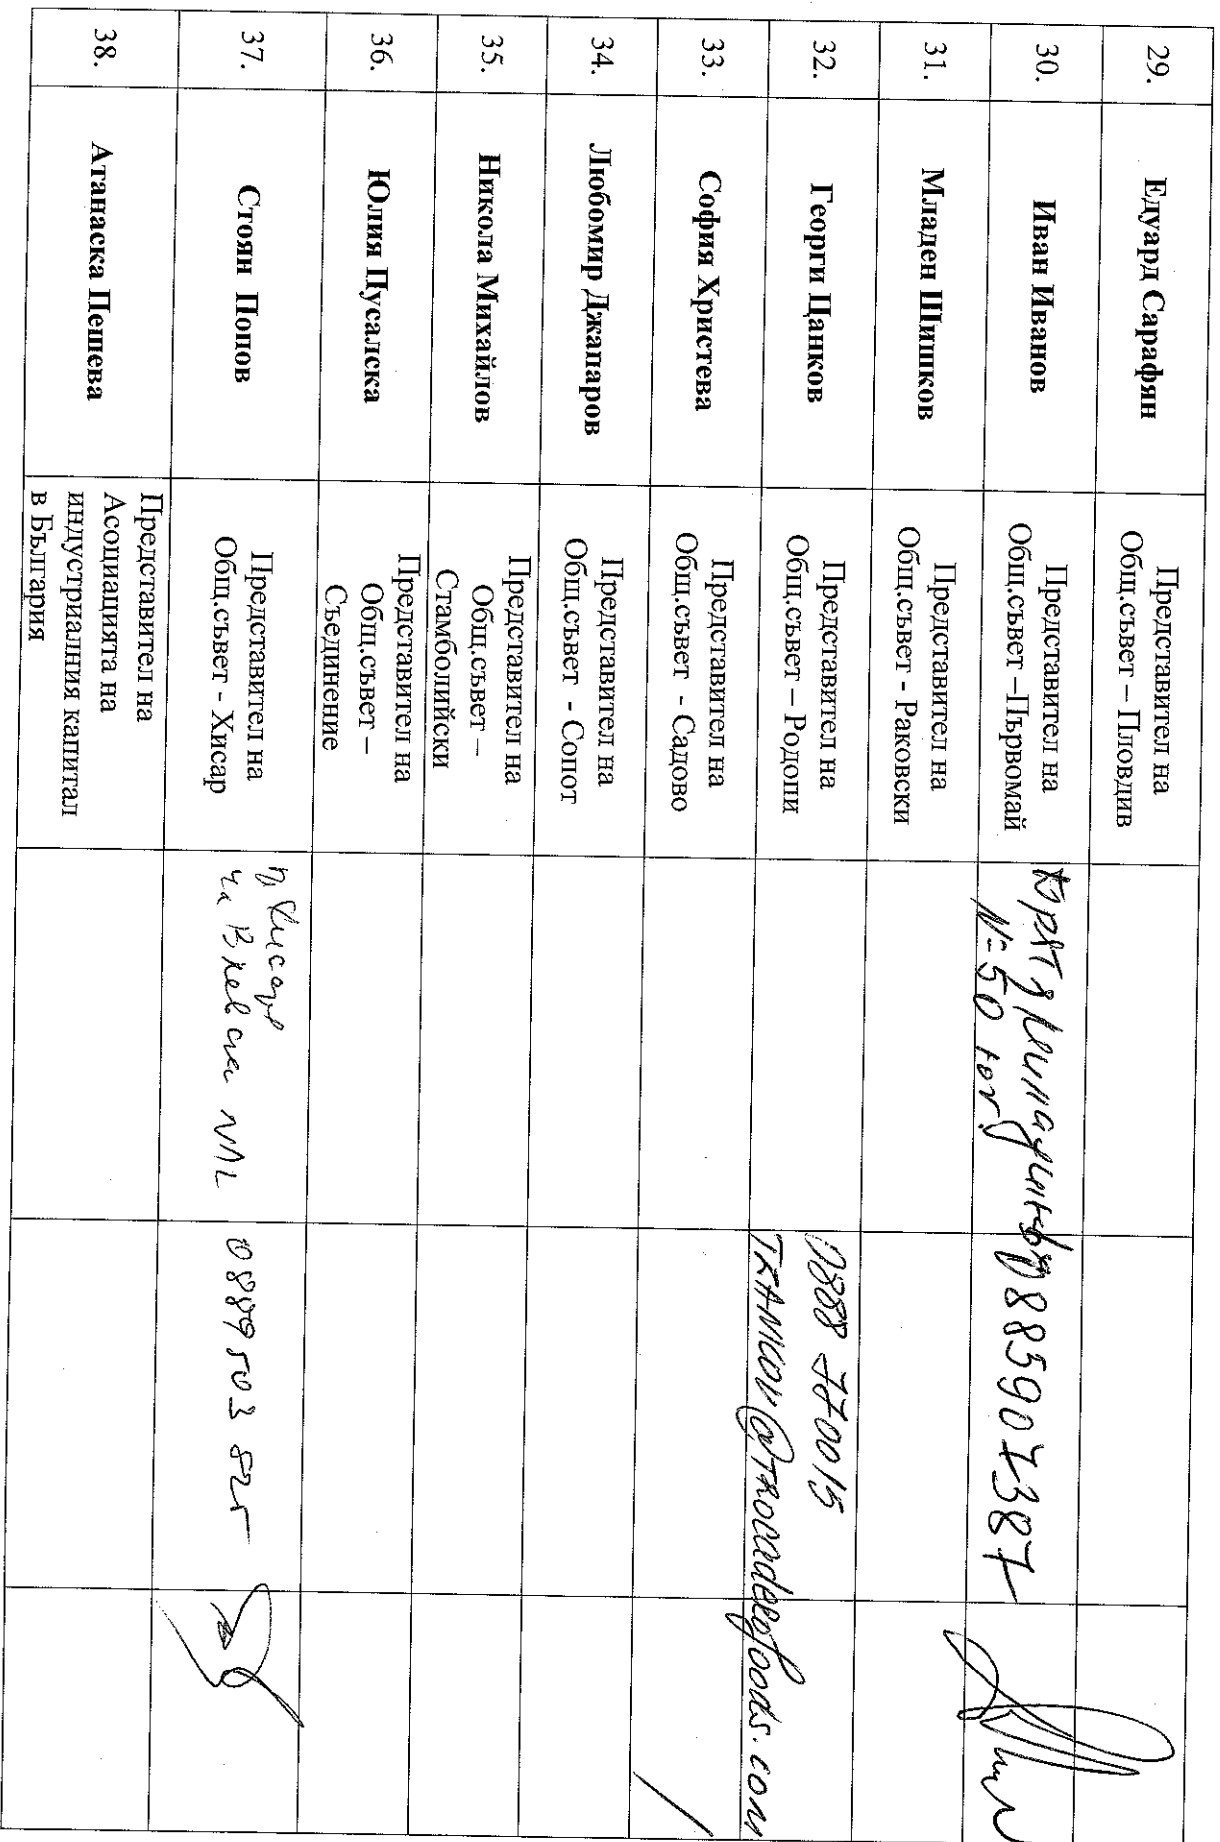 29.
Едуард Сарафян
Представител на
Общ.съвет – Пловдив
30.
Иван Иванов
Представител на
Общ.съвет –Първомай
N=50
0885907387
31.
Младен Шишков
Представител на
Общ.съвет - Раковски
32.
Георги Цанков
Представител на
Общ.съвет – Родопи
0888 770015
33.
София Христева
Представител на
Общ.съвет - Садово
34.
Любомир Джапаров
Представител на
Общ.съвет - Сопот
35.
Никола Михайлов
Представител на
Общ.съвет –
Стамболийски
36.
Юлия Пусалска
Представител на
Общ.съвет –
Съединение
37.
Стоян Попов
Представител на
Общ.съвет - Хисар
0889 503 825
38.
Атанаска Пешева
Представител на
Асоциацията на
индустриалния капитал
в България